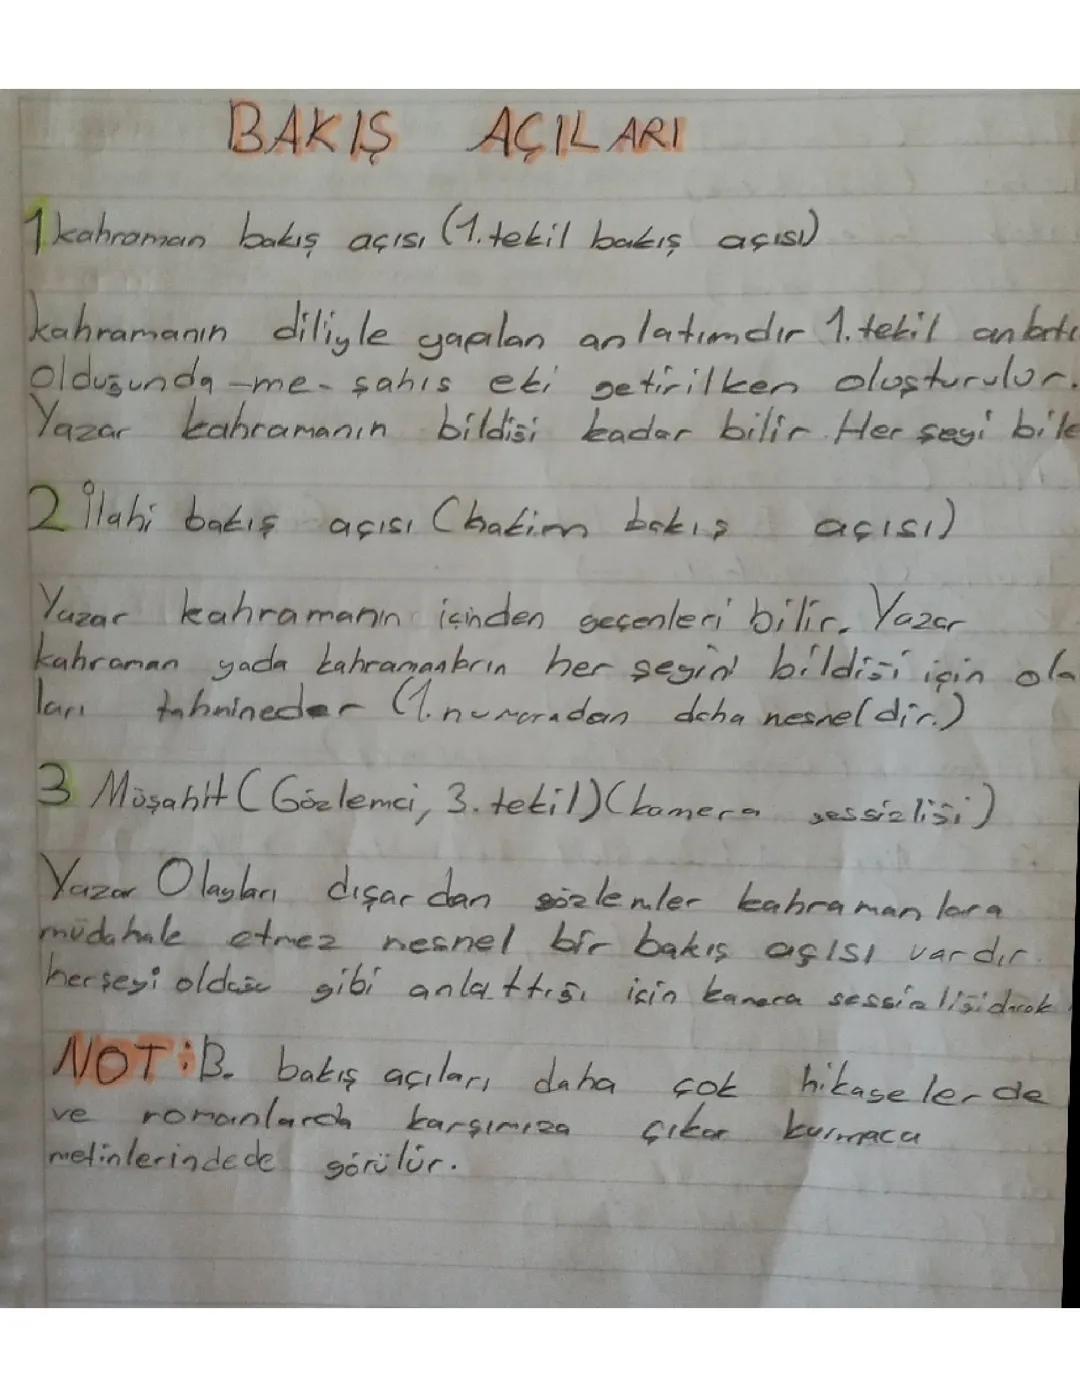 BAKIŞ AÇILARI
1 kahraman bakış açısı (1. tekil bakış açısı)
kahramanın diliyle yapılan anlatımdır 1. tekil
Olduğunda -me- şahıs eki getirilken oluşturulur.
Yazar kahramanın bildiği kadar bilir. Her şeyi bile
2 İlahi bakış açısı (hakim bakış açısı)
Yazar kahramanın içinden geçenleri bilir. Yazar
kahraman yada kahramanların her şeyini bildiği için ola
ları tahmineder (1. numaradan daha nesneldir.)
3 Müşahit (Gözlemci, 3. tekil) (kamera sessizliği)
Yazar Olayları dışardan gözlemler kahramanlara
müdahale etmez nesnel bir bakış açısı vardır.
herşeyi olduğu gibi anlattığı için kamera sessizliği
NOT: B. bakış açıları daha çok hikayelerde
ve romanlarda karşımıza çıkar kurmaca
metinlerindede görülür.